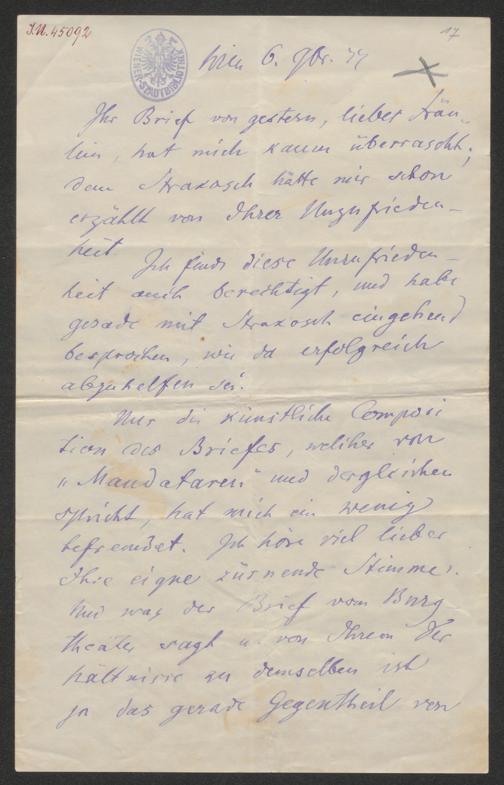 I.N. 45092
17
WIENER STADTBIBLIOTHEK
Wien 6. 9br. 77
Ihr Brief von gestern, lieber Fräu-
lein, hat mich kaum überrascht;
denn Strakosch hatte mir schon
erzählt von Ihrer Unzufrieden-
heit
Ich finde diese Unzufrieden-
heit auch berechtigt, und habe
gerade mit Strakosch eingehend
besprochen, wie da erfolgreich
abzuhelfen sei.
Nur die künstliche Composi
tion des Briefes, welcher von
"Mandataren" und dergleichen
spricht, hat mich ein wenig
befremdet. Ich höre viel lieber
Ihre eigne zürnende Stimme.
Und was der Brief vom Burg
theater sagt u. von Ihrem Ver
hältnisse zu demselben ist
ja das gerade Gegentheil von